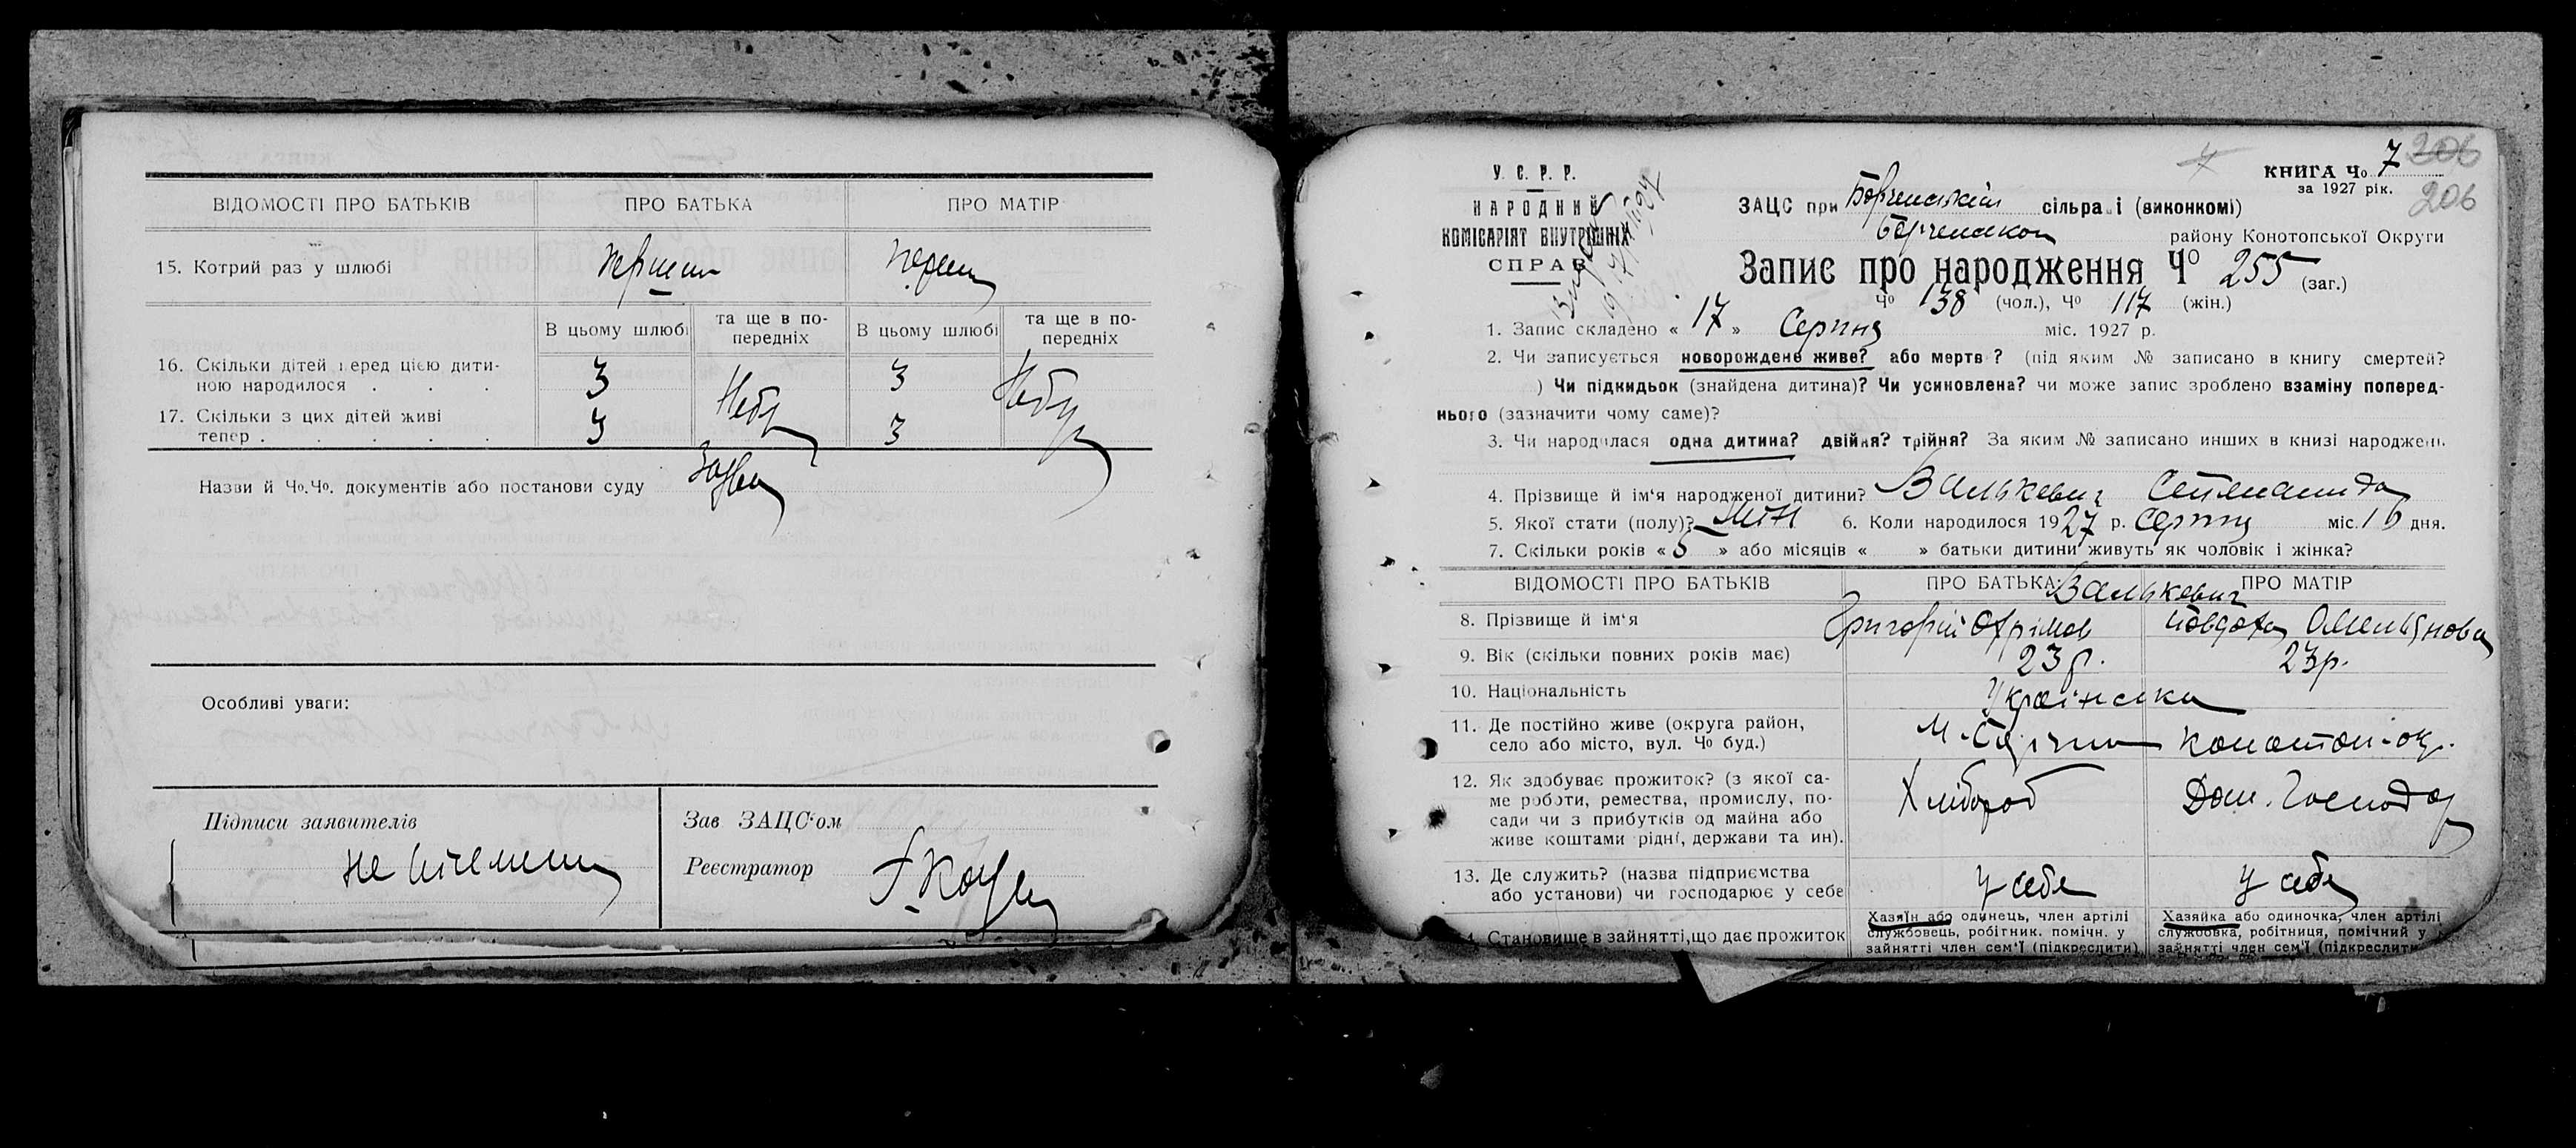 ВІДОМОСТІ ПРО БАТЬКІВ ПРО БАТЬКА ПРО МАТІР
15. Котрий раз у шлюбі
В цьому шлюбі та ще в по- передніх В цьому шлюбі та ще в по- передніх
16. Скільки дітей перед цією дити-
ною народилося . . . 3 3
17. Скільки з цих дітей живі
тепер . . . . . 3 3
Назви й Чо.Чо. документів або постанови суду
Особливі уваги:
Підписи заявителів
не письменна
Зав ЗАЦС‘ом
Реєстратор
У. С. Р. Р.
НАРОДНИЙ
КОМІСАРІЯТ ВНУТРІШНІХ
СПРАВ
КНИГА Чо 7 206
за 1927 рік.
206
ЗАЦС при Борзенській сільраді (виконкомі)
району Конотопської Округи
Запис про народження Чо 255 (заг.)
Чо 138 (чол.), Чо 117 (жін.)
1. Запис складено « 17 » Серпня міс. 1927 р.
2. Чи записується новорождене живе? або мертве? (під яким № записано в книгу смертей?
) Чи підкидьок (знайдена дитина)? Чи усиновлена? чи може запис зроблено взаміну поперед-
нього (зазначити чому саме)?
3. Чи народилася одна дитина? двійня? трійня? За яким № записано инших в книзі народжень
4. Прізвище й ім‘я народженої дитини? Валькевич
5. Якої стати (полу)? жін 6. Коли народилося 1927 р. Серпня міс. 16 дня.
7. Скільки років « 5 » або місяців « » батьки дитини живуть як чоловік і жінка?
ВІДОМОСТІ ПРО БАТЬКІВ ПРО БАТЬКА ПРО МАТІР
Валькевич
8. Прізвище й ім‘я Григорій Охрімов Омелянова
9. Вік (скільки повних років має) 23 р. 23 р.
10. Національність Українська
11. Де постійно живе (округа район,
село або місто, вул. Чо буд.) м. Борзна Конотоп. окр.
12. Як здобуває прожиток? (з якої са-
ме роботи, ремества, промислу, по-
сади чи з прибутків од майна або
живе коштами рідні, держави та ин). Хлібороб Дом. Господар
13. Де служить? (назва підприємства
або установи) чи господарює у себе у себе у себе
14. Становище в зайнятті, що дає прожиток
Хазяїн або одинець, член артілі
службовець, робітник. помічн. у
зайнятті член сем‘ї (підкреслити)
Хазяйка або одиночка, член артілі
службовка, робітниця, помічний у
зайнятті член сем‘ї (підкреслити